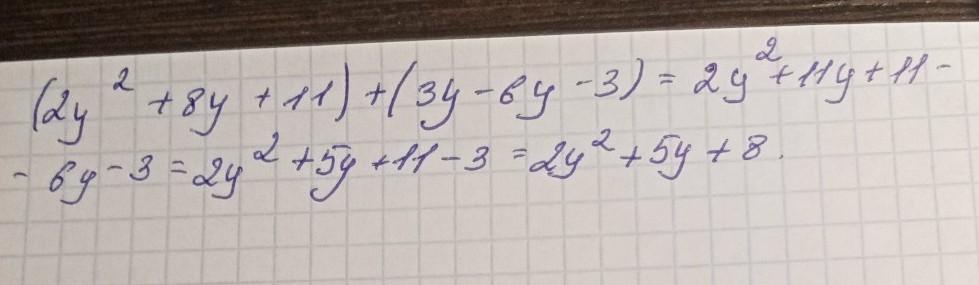 (2y² + 8y + 11) + (3y - 6y - 3) = 2y² + 11y + 11 -
- 6y - 3 = 2y² + 5y + 11 - 3 = 2y² + 5y + 8.